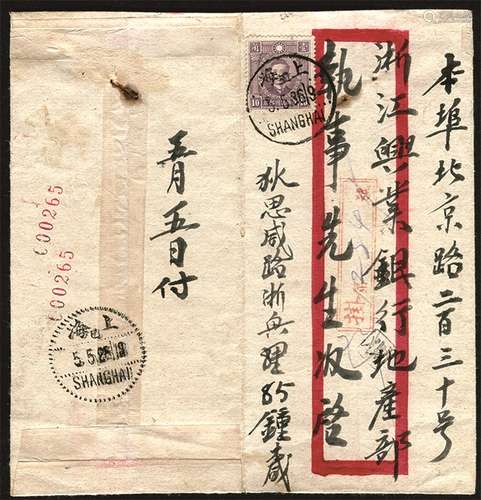 本埠北京路二百三十号
浙江興業銀行地產部
執事先生收啓
掛號
狄思威路浙興里85鍾
10
上海
SHANGHAI
五月五日付
000265
000265
上海
SHANGHAI